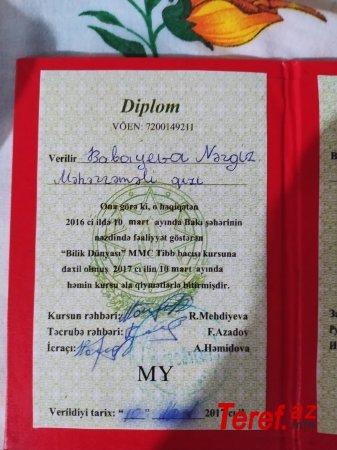 Diplom
VÖEN: 7200149211
Verilir Babayeva Nərgiz
Məhərrəməli qızı
Ona görə ki, o həqiqətən
2016 ci ildə 10 mart ayında Bakı şəhərinin
nəzdində fəaliyyət göstərən
“Bilik Dünyası” MMC Tibb bacısı kursuna
daxil olmuş 2017 ci ilin 10 mart ayında
həmin kursu əla qiymətlərlə bitirmişdir.
Kursun rəhbəri: R.Mehdiyeva
Təcrubə rəhbəri: F.Azadov
İcraçı: A.Həmidova
MY
Verildiyi tarix: “10” 2017 ci
Teref.az